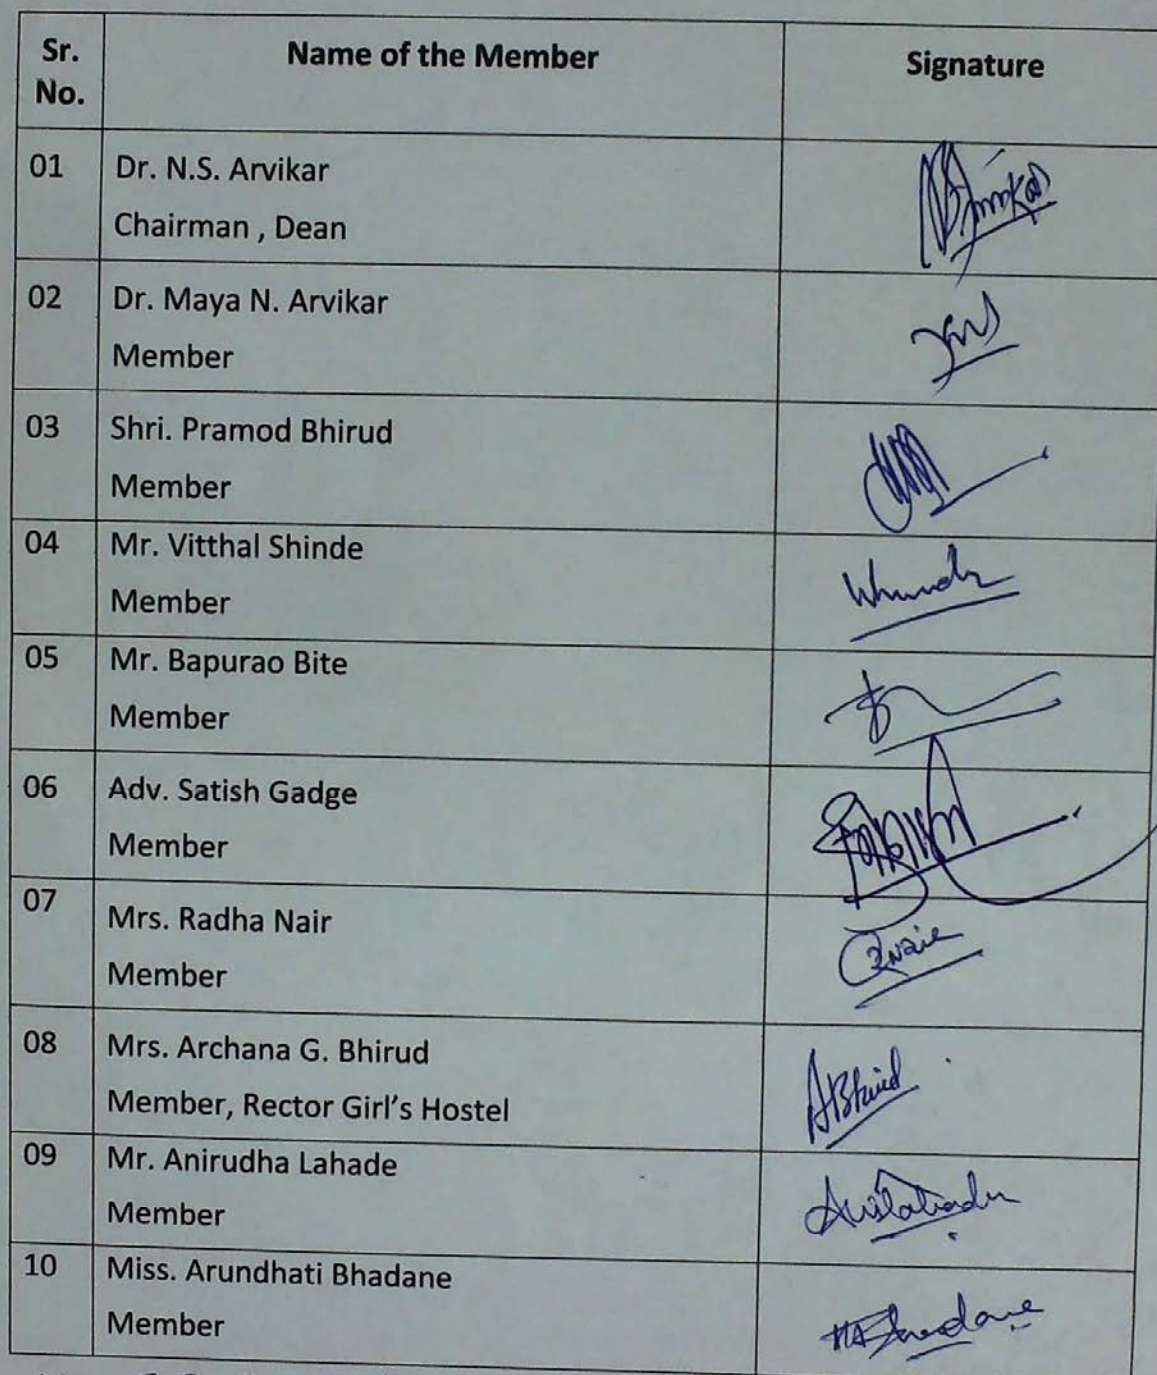 Sr. No. Name of the Member Signature
01 Dr. N.S. Arvikar
Chairman , Dean
02 Dr. Maya N. Arvikar
Member
03 Shri. Pramod Bhirud
Member
04 Mr. Vitthal Shinde
Member
05 Mr. Bapurao Bite
Member
06 Adv. Satish Gadge
Member
07 Mrs. Radha Nair
Member
08 Mrs. Archana G. Bhirud
Member, Rector Girl's Hostel
ABhirud
09 Mr. Anirudha Lahade
Member
10 Miss. Arundhati Bhadane
Member